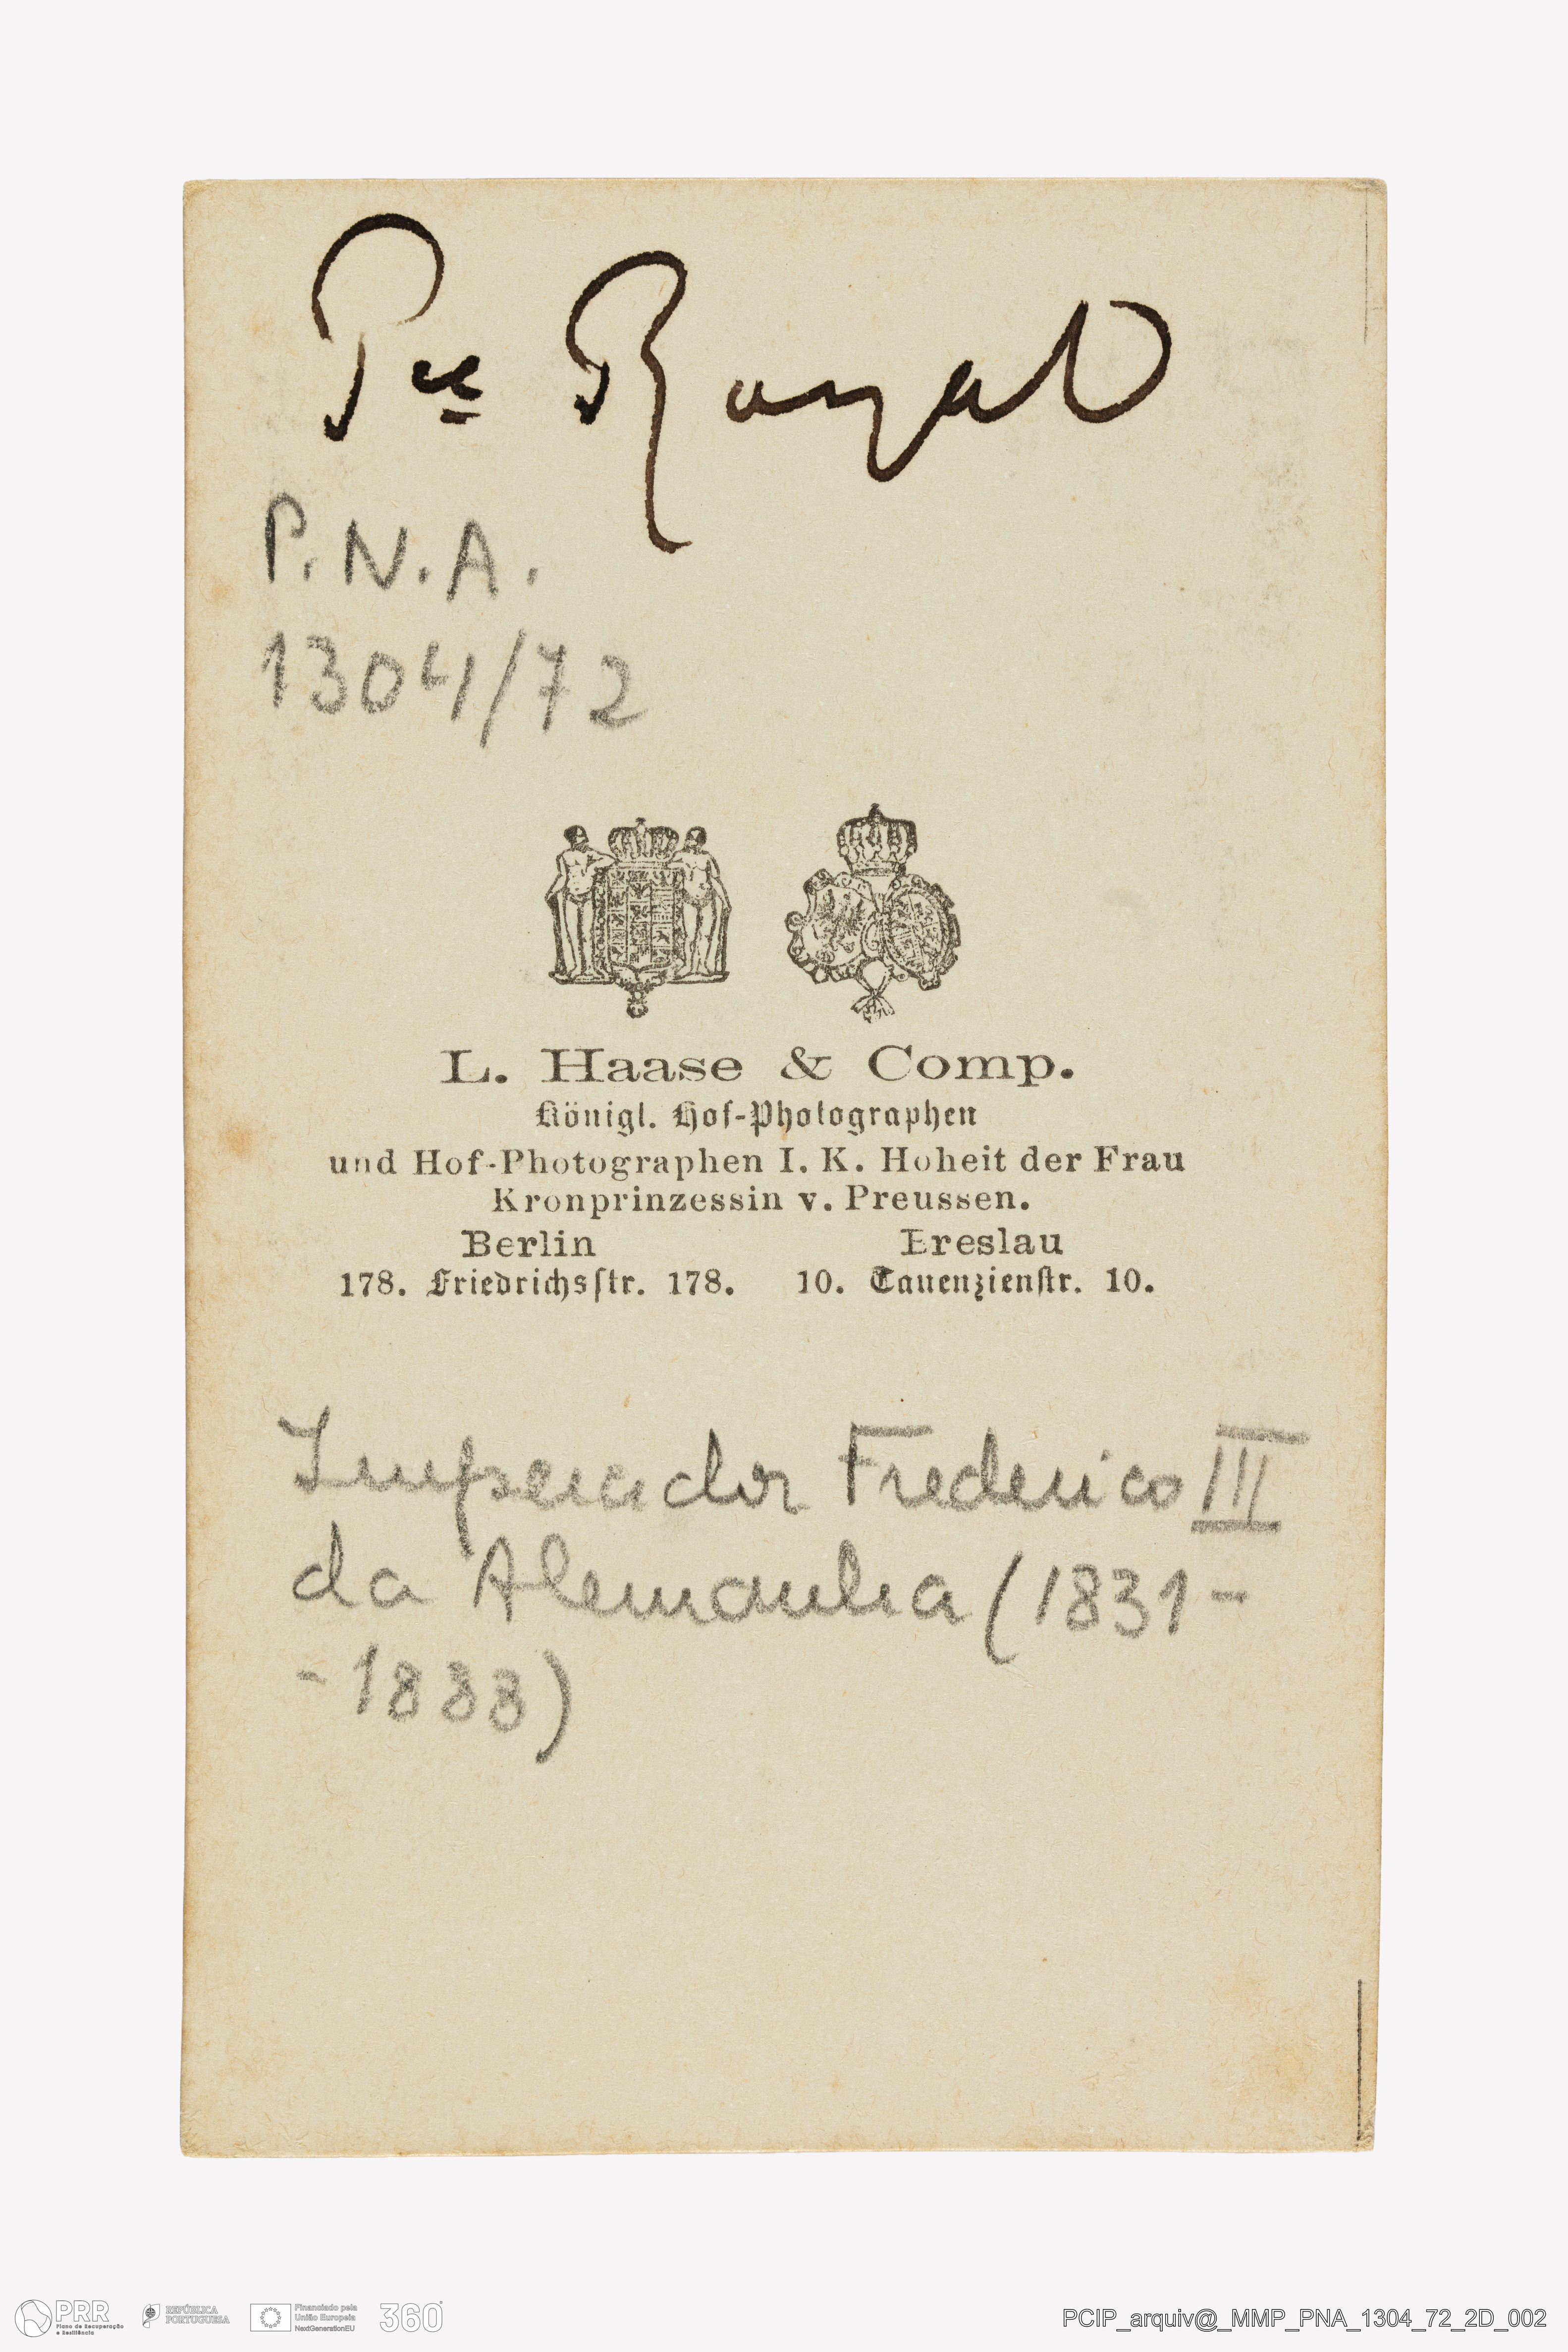 Pce Royal
P.N.A.
1304/72
L. Haase & Comp.
Königl. Hof-Photographen
und Hof-Photographen I. K. Hoheit der Frau
Kronprinzessin v. Preussen.
Berlin Breslau
178. Friedrichsstr. 178. 10. Tauenzienstr. 10.
Imperador Frederico III
da Alemanha (1831-
-1888)
PRR
Plano de Recuperação
e Resiliência
REPÚBLICA
PORTUGUESA
Financiado pela
União Europeia
NextGenerationEU
360°
PCIP_arquiv@_MMP_PNA_1304_72_2D_002